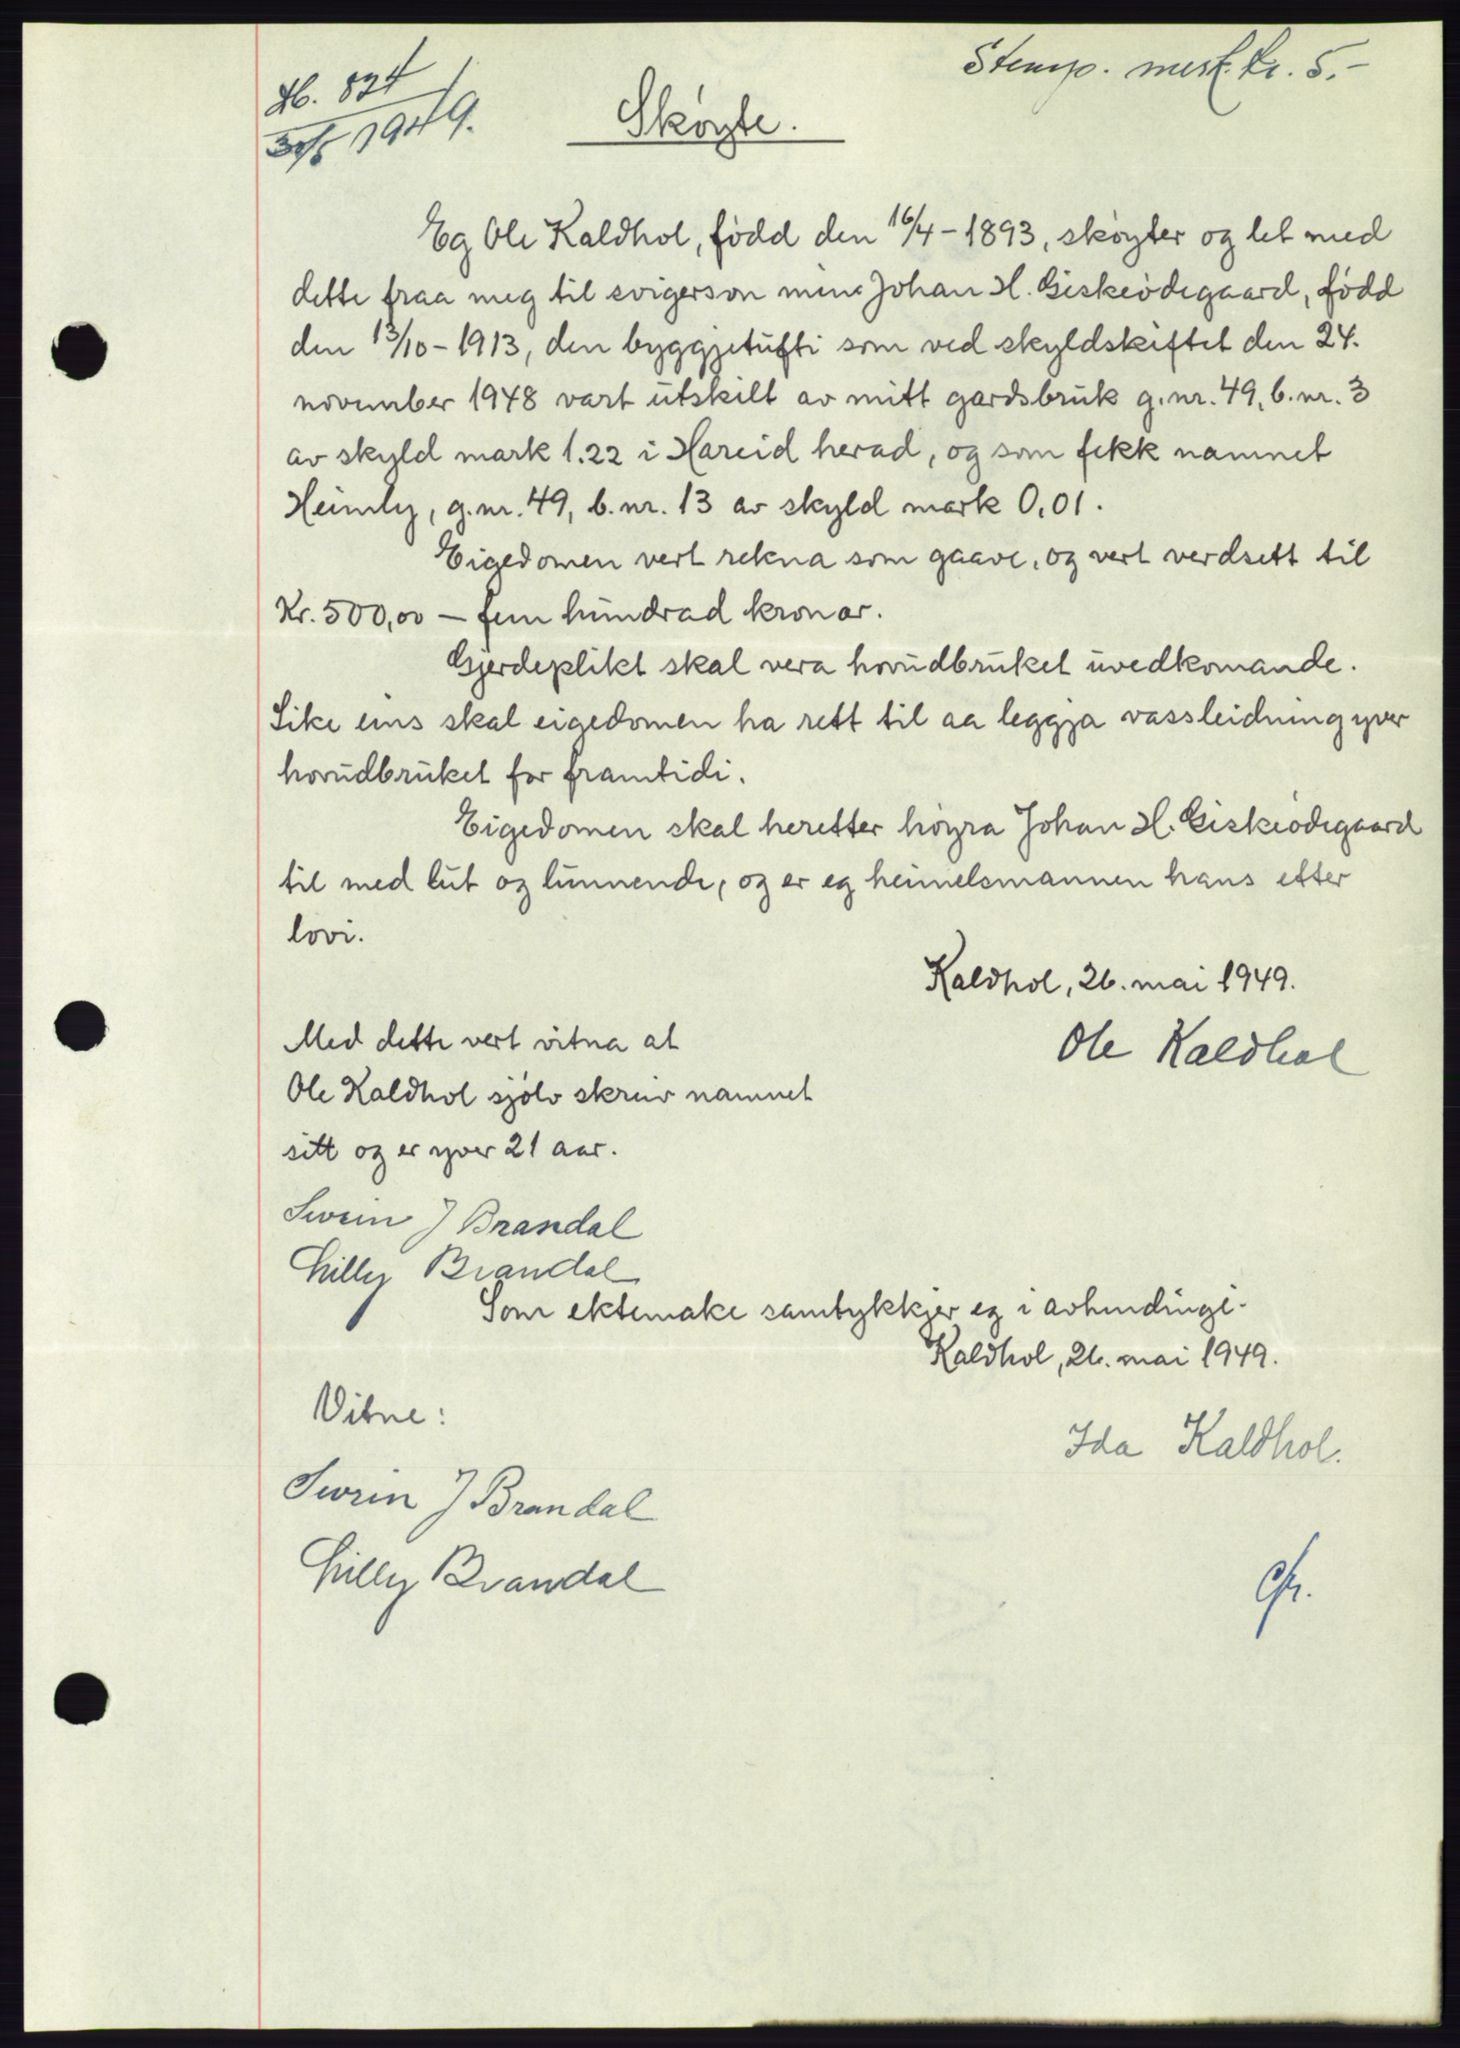 Stemp. merk. kr. 5.-
Db. 824
30/5 1949.
Skøyte.
Eg Ole Kaldhol, født den 16/4-1893, skøyter og let med
dette fraa meg til svigerson min Johan H. Giskeødegaard, fødd
den 13/10-1913, den byggjetufti som ved skyldskiftet den 24.
november 1948 vart utskilt av mitt gardsbruk g.nr. 49, b.nr. 3
av skyld mark 1.22 i Hareid herad, og som fekk namnet
Heimly, g.nr. 49, b.nr. 13 av skyld mark 0,01.
Eigedomen vert rekna som gaave, og vert verdsett til
Kr. 500,00 — fem hundrad kronor.
Gjerdeplikt skal vera hovudbruket uvedkomande.
Like eins skal eigedomen ha rett til aa leggja vassleidning yver
hovudbruket for framtidi.
Eigedomen skal heretter høyra Johan H. Giskeødegaard
til med lut og lunnende, og er eg heimelsmannen hans etter
lovi.
Kaldhol, 26. mai 1949.
Ole Kaldhol
Med dette vert vitna at
Ole Kaldhol sjølv skreiv namnet
sitt og er yver 21 aar.
Sverin J Brandal
Lilly Brandal
Som ektemake samtykkjer eg i avhendingi.
Kaldhol, 26. mai 1949.
Ida Kaldhol.
Vitne:
Sverin J Brandal
Lilly Brandal